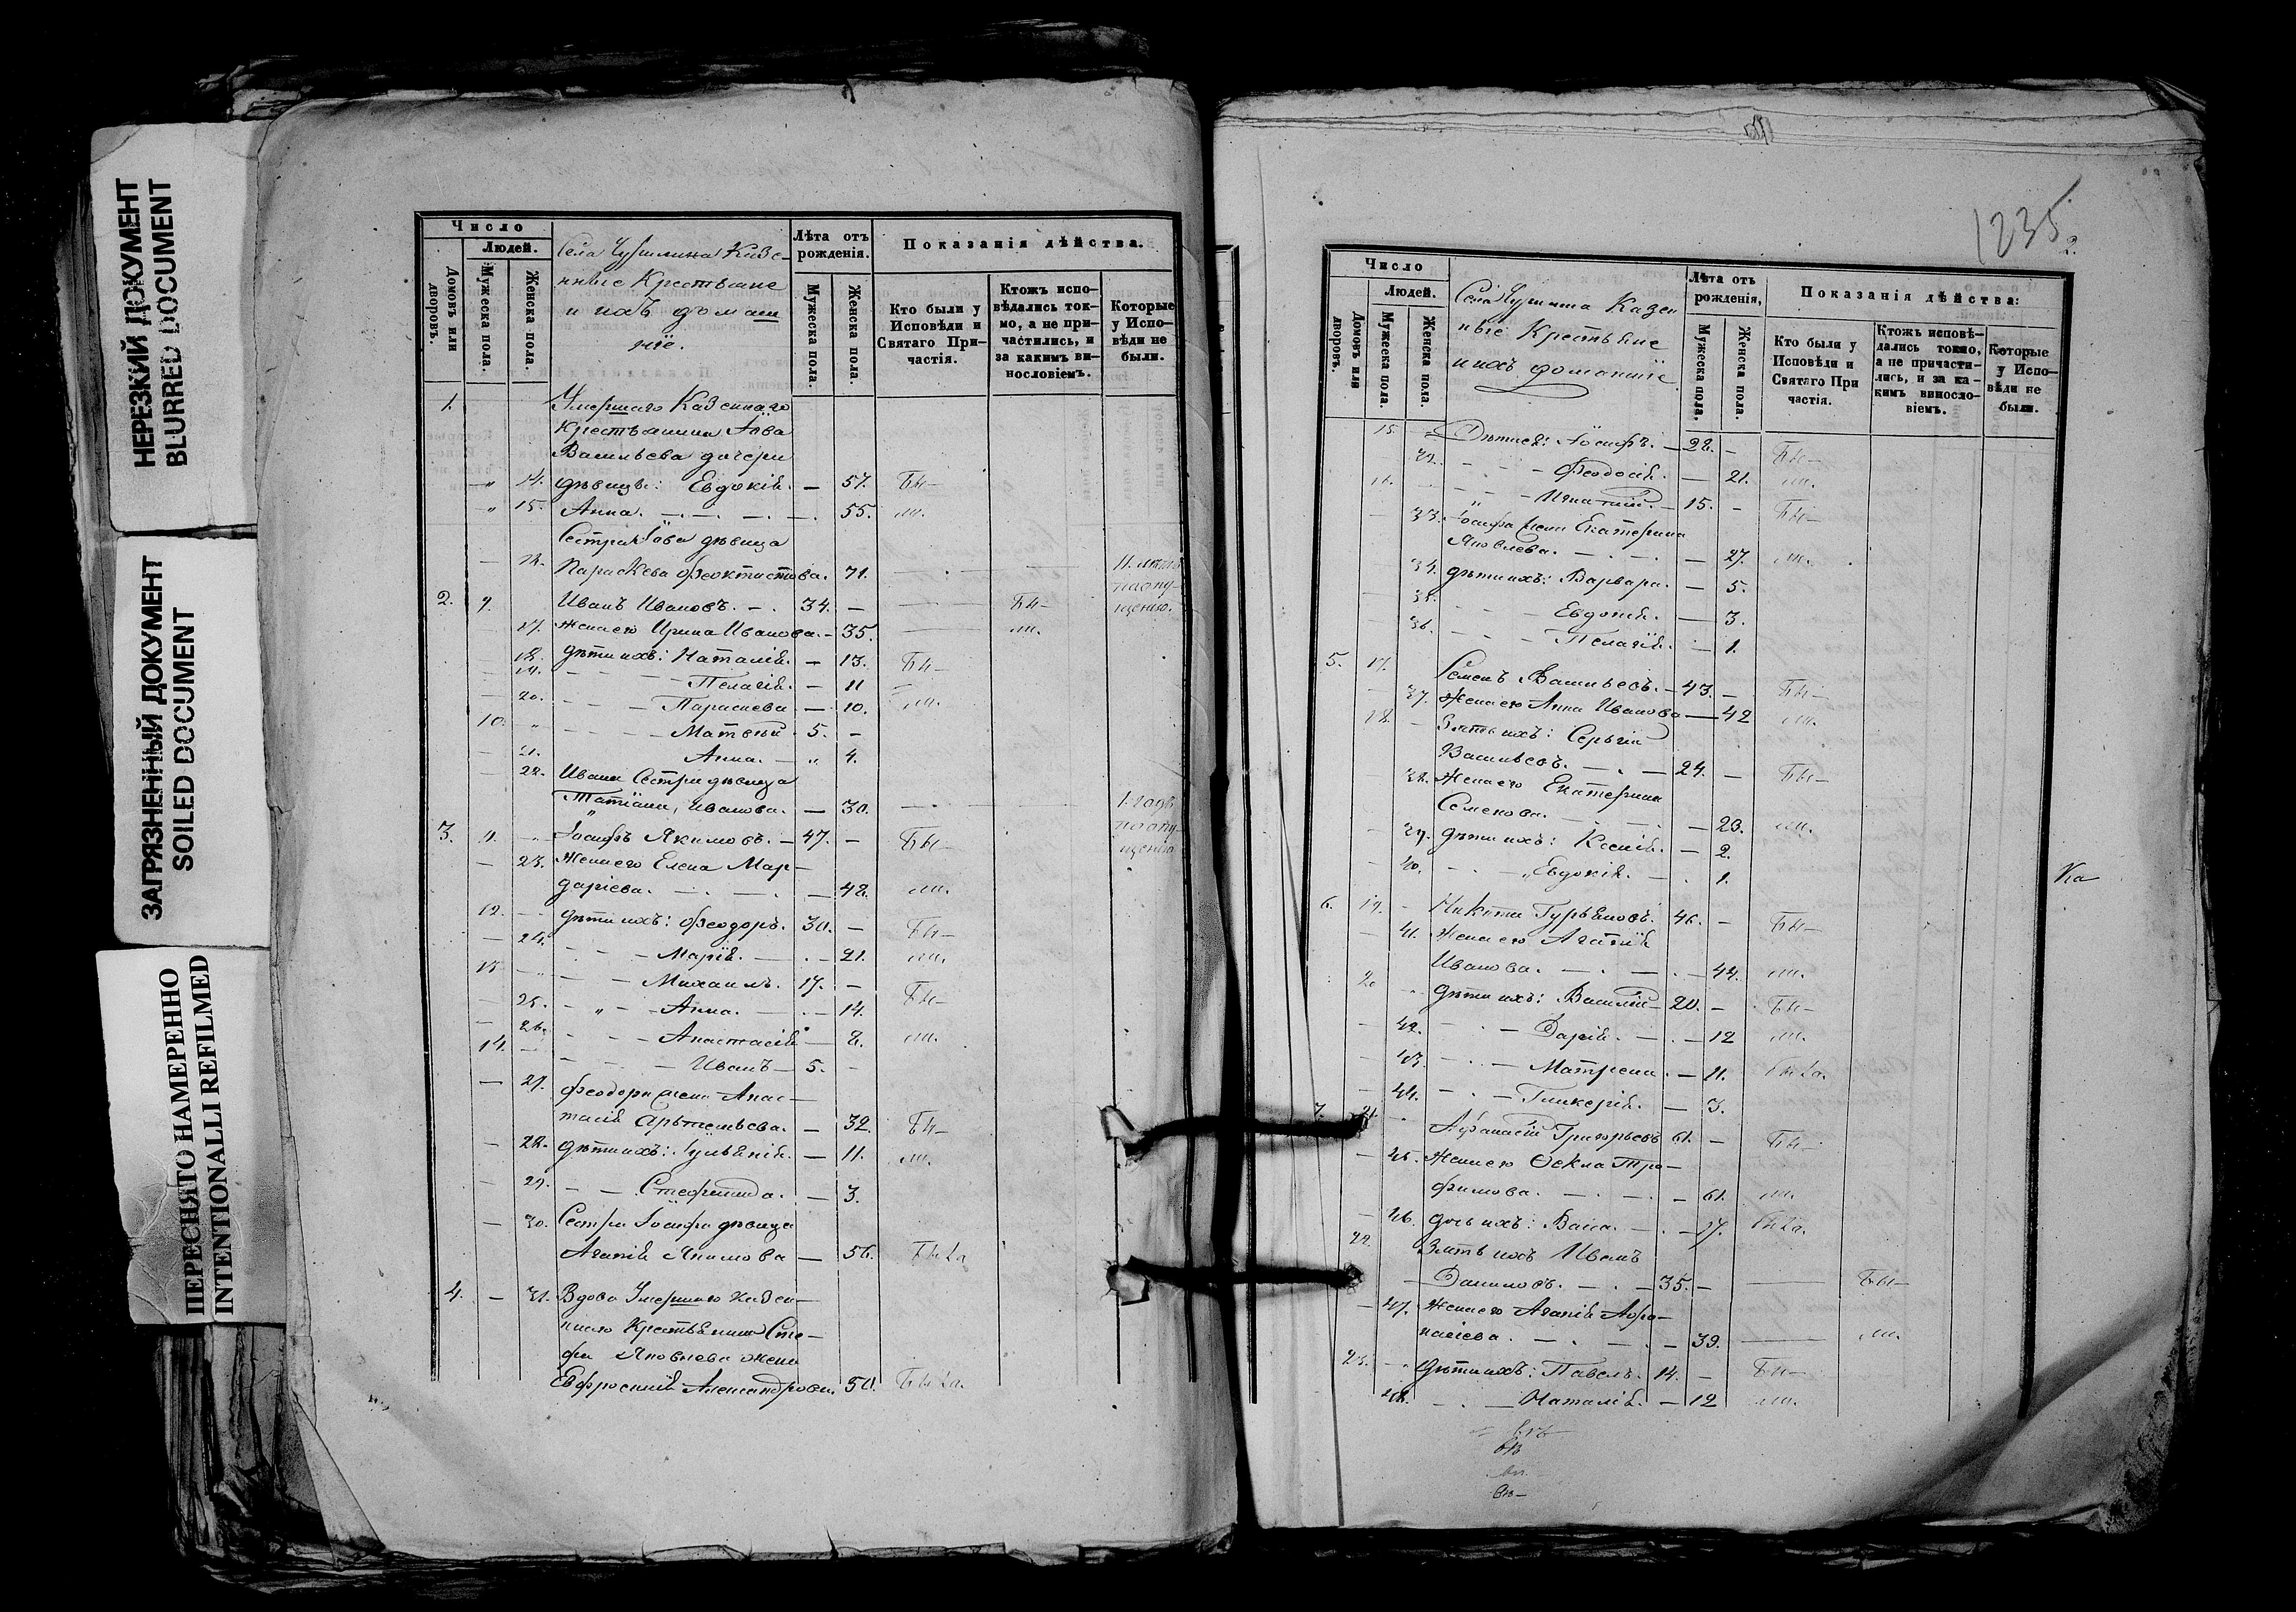 НЕРЕЗКИЙ ДОКУМЕНТ
BLURRED DOCUMENT
ЗАГРЯЗНЕННЫЙ ДОКУМЕНТ
SOILED DOCUMENT
ПЕРЕСНЯТО НАМЕРЕННО
INTENTIONALLI REFILMED
Число
Людей.
Домовъ или дворовъ.
Мужеска пола.
Женска пола.
Села Казе-
нные Крестьяне
и ихъ домаш
нїе.
Лѣта отъ рожденія.
Мужеска пола.
Женска пола.
Показанія дѣйства.
Кто были у Исповѣди и Святаго При-частія.
Ктожъ испо-вѣдались ток-мо, а не при-частились, и за какимъ ви-нословіемъ.
Которые у Испо-вѣди не были.
1. Умершаго Казеннаго
Крестьянина Іова
Васильева дочери
14. дѣвицы: Евдокія. — 57. Бы-
15. Анна. — 55. ли.
Сестра Іова дѣвица
Параскева Феоктистова. 71.
2. 9. Иванъ Ивановъ. — 34. — Бы-
17. Жена его Ирина Иванова. — 35. ли.
18. дѣти ихъ: Наталія. — 13. Бы-
19. Пелагія. — 11
20. Параскева — 10. ли.
10. Матвѣй. 5. —
21. Анна. — 4.
22. Ивана Сестра дѣвица
Татіана, Иванова. — 30. 1. годъ
по опу-
щенію
3. 11. Іосифъ Якимовъ. — 47. — Бы-
23. Жена его Елена Мар-
даріева. — 48. ли.
12. дѣти ихъ: Феодоръ. 30. — Бы-
24. Марія. — 21. ли.
Михаилъ. 17. —
25. Анна. — 14. Бы-
26. Анастасія — 8. ли.
14. Иванъ — 5. -
27. Феодора жена Анас-
тасія Арѣтемьева. — 32. Бы-
28. дѣти ихъ: Іуліанія. — 11. ли.
29. Стефанида. — 3.
30. Сестра Іосифа дѣвица
Агапія Якимова — 56. Была
4. — 31. Вдова Умершаго Казен-
наго Крестьянина Сте-
фа Яковлева жена
Евфросинія Александрова. 50. Была.
1235
2.
Число
Людей.
Домовъ или дворовъ.
Мужеска пола.
Женска пола.
Села Казен
ные Крестьяне
и ихъ домашніе
Лѣта отъ рожденія,
Мужеска пола.
Женска пола.
Показанія дѣйства:
Кто были у Исповѣди и Святаго При частія.
Ктожъ исповѣ-дались токмо, а не причасти-лись, и за ка-кимъ винословіемъ.
Которые у Испо-вѣди не были.
15. Дѣти ея: Іосифъ. — 28. - Бы-
32. Феодосія. — 21. ли.
16. Игнатій. — 15. - Бы-
33. Іосифа жена Екатерина
Яковлева. — 27. ли.
34. дѣти ихъ: Варвара. — 5.
35. Евдокія. — 3.
36. Пелагія. — 1.
5. 17. Семенъ Васильевъ. — 43. — Бы-
37. Жена его Анна Иванова — 42 ли.
18. Зять ихъ: Сергій
Васильевъ. — 24. — Бы-
38. Жена его Екатерина
Семенова. — 23. ли.
39. дѣти ихъ: Ксенія. — 2.
40. Евдокія. — 1.
Ка
6. 19. Никита Гурьяновъ. 46. - Бы-
41. Жена его Агафія
Иванова. — 44. ли.
дѣти ихъ: Василій — 20. - Бы-
42. Дарія. — 12 ли.
43. Матрена. — 11. Была.
44. Гликерія. — 3.
7. 21. Афанасій Григорьевъ 61. — Бы-
45. Жена его Ѳекла Тро-
фимова. — 61. ли.
46. дочь ихъ: Васса. — 17. Была.
22. Зять ихъ Иванъ
Даниловъ. — 35. — Бы-
47. Жена его Агапія Афа-
насіева. — 39. ли.
23. дѣти ихъ: Павелъ. 14. — Бы-
48. Наталія. — 12 ли.